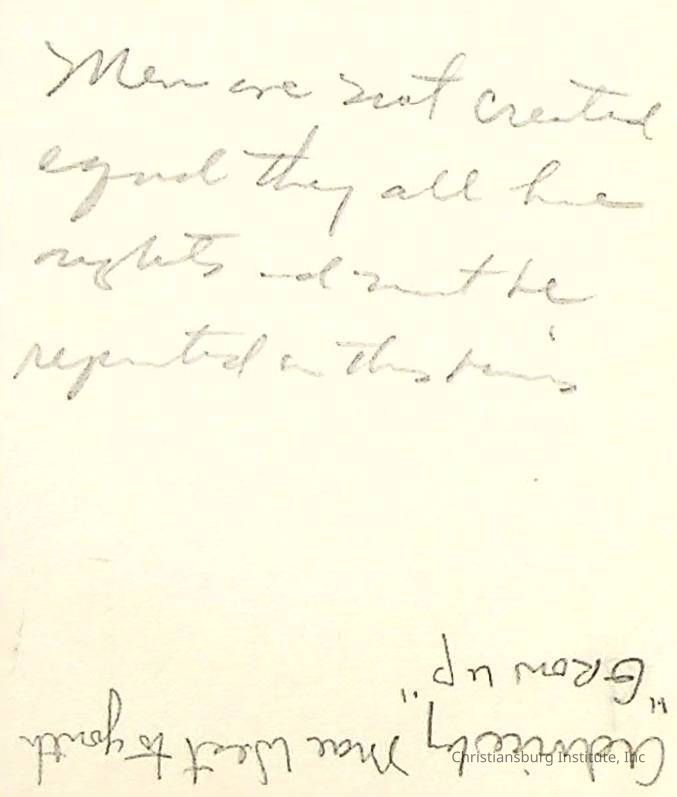 Men are not created
equal they all have
rights and must be
respected in this
Advice by Mae West to youth
"Grow up"
Christiansburg Institute, Inc